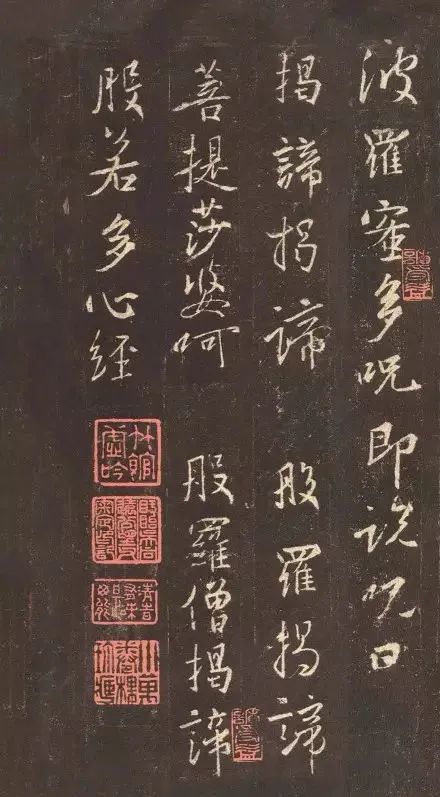 波羅蜜多呪即説呪曰
揭諦揭諦 般羅揭諦
菩提莎婆呵 般羅僧揭諦
般若多心經